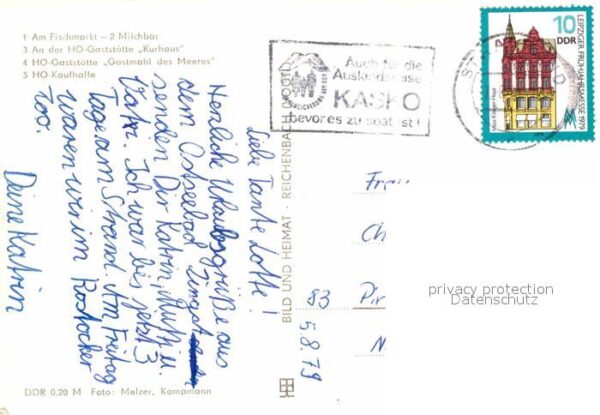 1 Am Fischmarkt — 2 Milchbar
3 An der HO-Gaststätte „Kurhaus"
4 HO-Gaststätte „Gastmahl des Meeres"
5 HO-Kaufhalle
Auch für die
Auslandsreise
KASKO
bevor es zu spät ist!
10
DDR
LEIPZIGER FRÜHJAHRSMESSE 1979
Liebe Tante Lotte!
Herzliche Urlaubsgrüße aus
dem Ostseebad Zingst
senden Dir Katrin, Mutti u.
Vati. Ich war bis jetzt 3
Tage am Strand. Am Freitag
waren wir im Rostocker
Zoo.
Deine Katrin
BILD UND HEIMAT · REICHENBACH (VOGTL)
5.8.79
83
privacy protection
Datenschutz
DDR 0.20 M Foto: Melzer, Kampmann